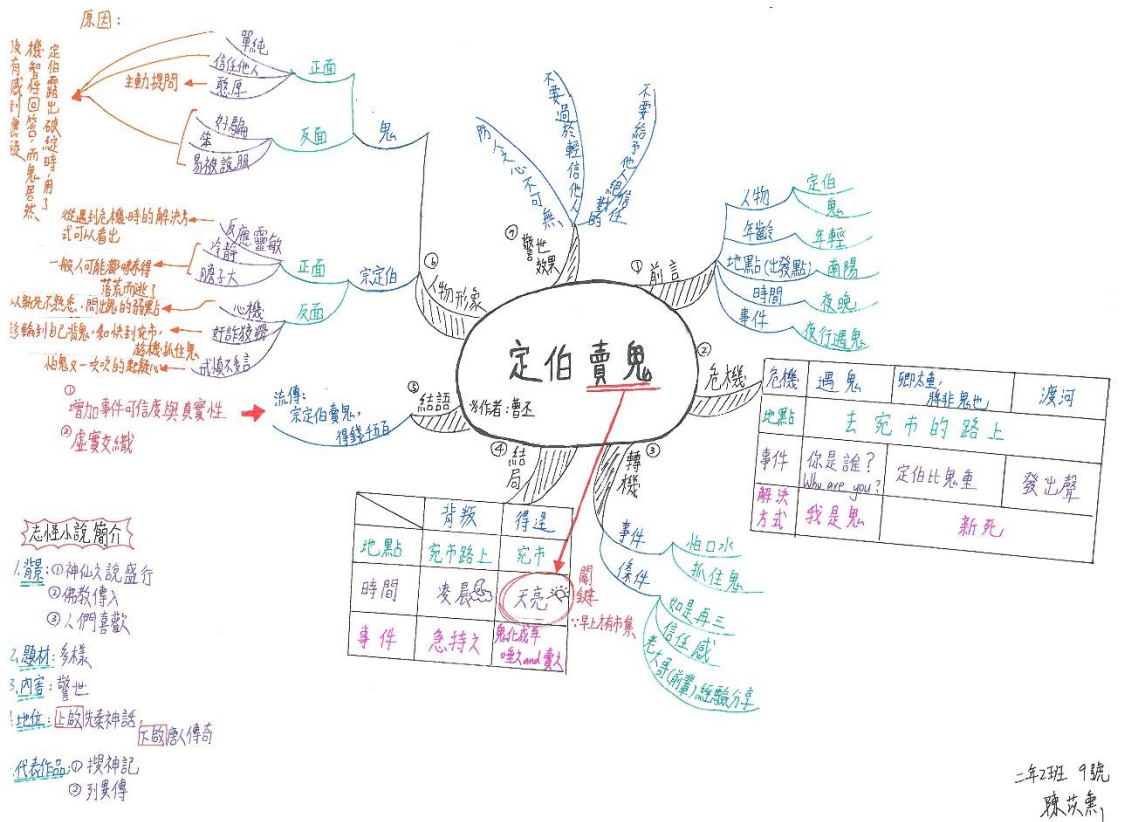 定伯賣鬼
※作者：曹丕
① 前言
人物
定伯
鬼
年齡
年輕
地點(出發點)
南陽
時間
夜晚
事件
夜行遇鬼
② 危機
危機 遇鬼 卿太重，將非鬼也 渡河
地點 去宛市的路上
事件 你是誰？ Who are you? 定伯比鬼重 發出聲
解決方式 我是鬼 新死
③ 轉機
事件
怕口水
抓住鬼
條件
如是再三
信任感
老大哥(前輩)經驗分享
④ 結局
背叛 得逞
地點 宛市路上 宛市
時間 凌晨 天亮
事件 急持之 鬼化成羊 唾之and賣之
關鍵
∵早上才有市集
⑤ 結語
流傳：
宗定伯賣鬼，
得錢千五百
①
增加事件可信度與真實性
②
虛實交織
⑥ 人物形象
鬼
正面
單純
信任他人
憨厚
主動提問
反面
好騙
笨
易被說服
原因：
定伯露出破綻時，用了
機智性回答，而鬼居然
沒有感到懷疑
宗定伯
正面
反應靈敏
冷靜
膽子大
從遇到危機時的解決方
式可以看出
一般人可能都嚇得
落荒而逃了
反面
心機
奸詐狡猾
戒慎不多言
以新死不熟悉，問出鬼的弱點
輪到自己背鬼，加快到宛市，
趁機抓住鬼
怕鬼又一次次的起疑心
⑦ 警世效果
防人之心不可無
不要過於輕信他人
不要給予他人絕對的信任
志怪小說簡介
1.背景：①神仙之說盛行
②佛教傳入
③人們喜歡
2.題材：多樣
3.內容：警世
地位：上啟先秦神話，
下啟唐人傳奇
代表作品：①搜神記
②列異傳
二年2班 9號